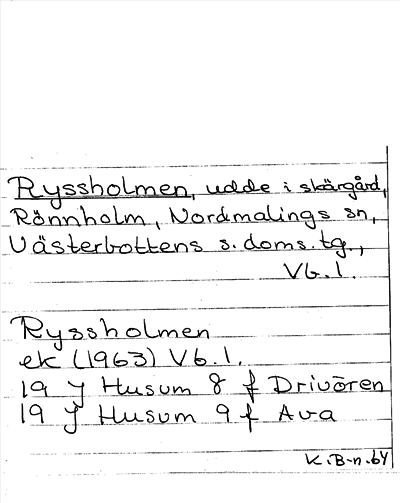 Ryssholmen, udde i skärgård,
Rönnholm, Nordmalings sn,
Västerbottens s. doms. tg.,
Vb. l.
Ryssholmen
ek (1963) Vb. l.
19 J Husum 8 f Drivören
19 J Husum 9 f Ava
K. B-n. 64